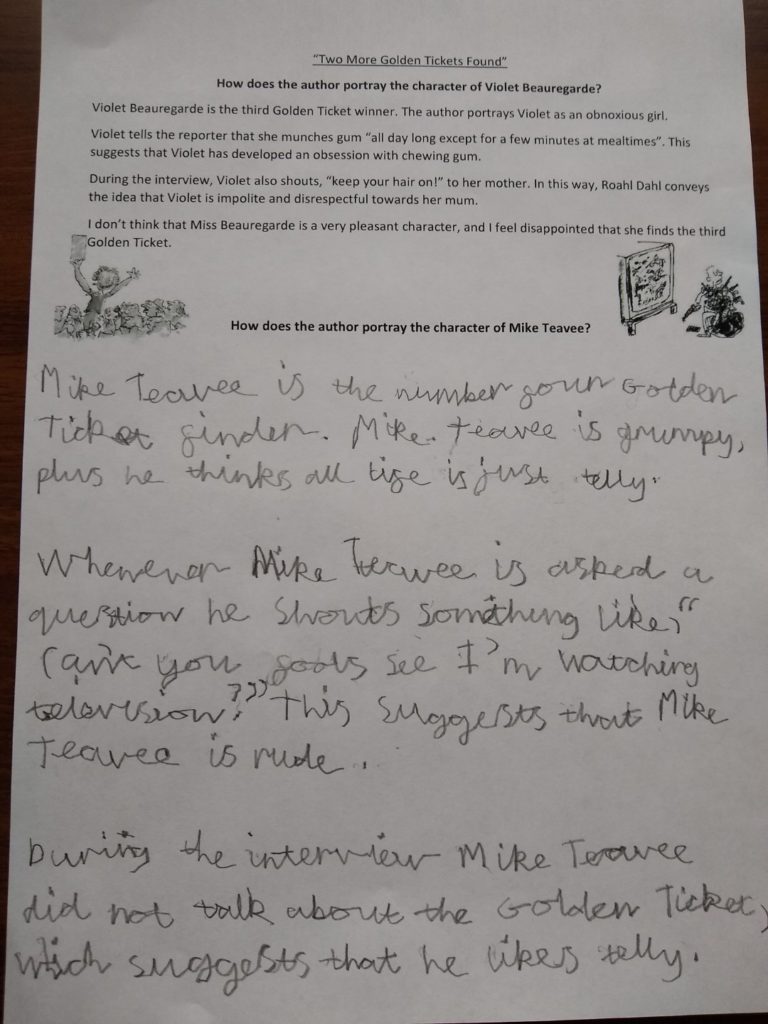 "Two More Golden Tickets Found"
How does the author portray the character of Violet Beauregarde?
Violet Beauregarde is the third Golden Ticket winner. The author portrays Violet as an obnoxious girl.
Violet tells the reporter that she munches gum "all day long except for a few minutes at mealtimes". This
suggests that Violet has developed an obsession with chewing gum.
During the interview, Violet also shouts, "keep your hair on!" to her mother. In this way, Roahl Dahl conveys
the idea that Violet is impolite and disrespectful towards her mum.
I don't think that Miss Beauregarde is a very pleasant character, and I feel disappointed that she finds the third
Golden Ticket.
How does the author portray the character of Mike Teavee?
Mike Teavee is the number four Golden
Ticket finder. Mike. Teavee is grumpy,
plus he thinks all life is just telly.
Whenever Mike Teavee is asked a
question he shouts something like, "
Can't you fools see I'm watching
television?" This suggests that Mike
Teavee is rude.
During the interview Mike Teavee
did not talk about the Golden Ticket,
which suggests that he likes telly.